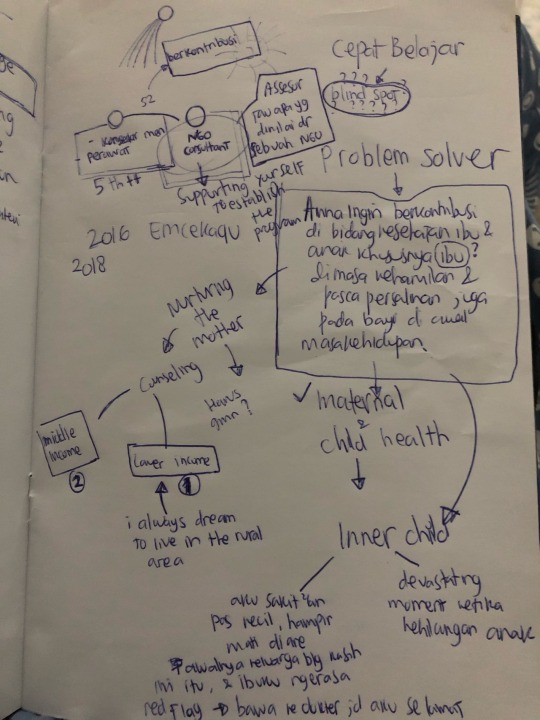 berkontribusi
S2
Cepat Belajar
? ? ?
blind spot
? ? ? ? ?
- konselor men
- perawat
NGO
consultant
Assesor
tau apa yg
dinilai dr
sebuah NGO
5 th ++
Supporting yurself
to establish
the
program
Problem solver
2016 Emcekaqu
2018
Anna Ingin berkontribusi
di bidang kesehatan ibu &
anak khususnya ibu ?
dimasa kehamilan &
pasca persalinan, juga
pada bayi di awal
masa kehidupan.
Nurturing
the
mother
Counseling
Harus
gmn?
middle
income
2
Lower income
1
i always dream
to live in the rural
area
✓ maternal
&
child health
Inner child
aku sakit²an
pas kecil, hampir
mati diare
awalnya keluarga blg kasih
ini itu, & ibuku ngerasa
red flag → bawa ke dokter jd aku selamat
devastating
moment ketika
kehilangan anak